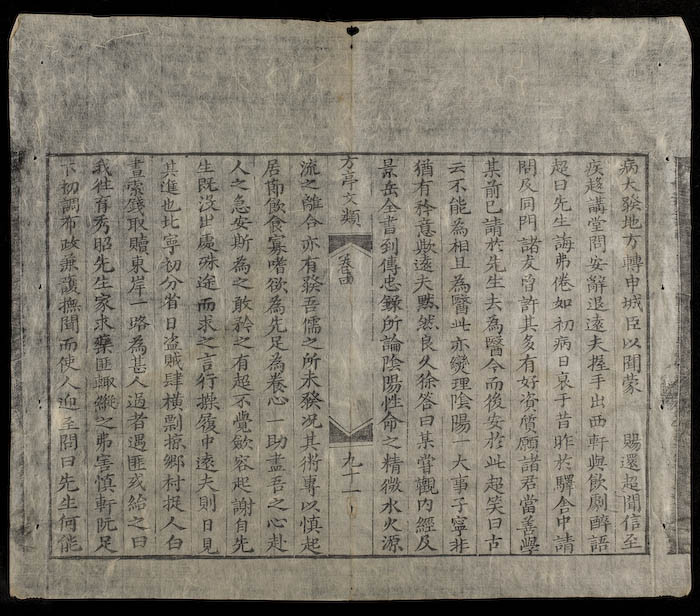 病大發地方轉申城臣以聞蒙　賜還超聞信至
疾趍講堂問安辭退逺夫握手出西軒與飲劇醉語
超曰先生誨弗倦如初病日衰于昔昨於驛舍中請
問及同門諸友曾許其多有好資質願諸君當善學
某前已請於先生夫為醫今而後安於此超笑曰古
云不能為相且為醫此亦燮理陰陽一大事子寧非
猶有矜意歟逺夫默然良久徐答曰某嘗觀内經及
景岳全書到傳忠錄所論陰陽性命之精微水火源
方亭文類
卷四
九十一
流之離合亦有發吾儒之所未發况其術專以慎起
居節飲食寡嗜欲為先足為養心一助盡吾之心赴
人之急安斯為之敢矜之有超不覺歛容起謝自先
生既没出處殊途而求之言行操履中逺夫則日見
其進也比寧初分省日盗賊肆横剽掠鄉村捉人白
晝索錢取贖東岸一路為甚人過者遇匪或紿之曰
我徃育秀昭先生家求藥匪輙縱之弗害慎軒阮足
下初調布政兼護撫聞而使人迎至問曰先生何能